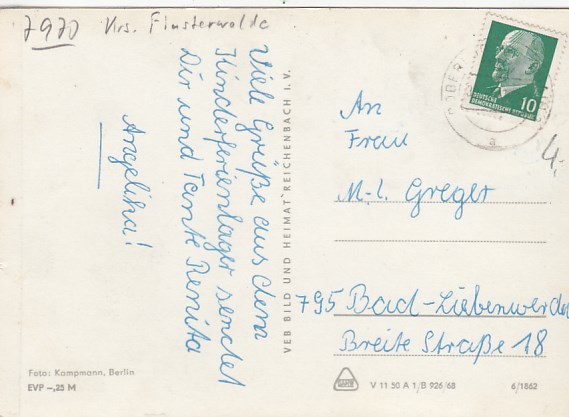 7970 Krs. Finsterwalde
Viele Grüße aus dem
Kinderferienlager sendet
Dir und Tante Renita
Angelika!
VEB BILD UND HEIMAT REICHENBACH I. V.
DEUTSCHE
DEMOKRATISCHE REPUBLIK
10
4.
An
Frau
M.-L. Greger
795 Bad-Liebenwerda
Breite Straße 18
Foto: Kampmann, Berlin
EVP –,25 M
V 11 50 A 1/B 926/68
6/1862